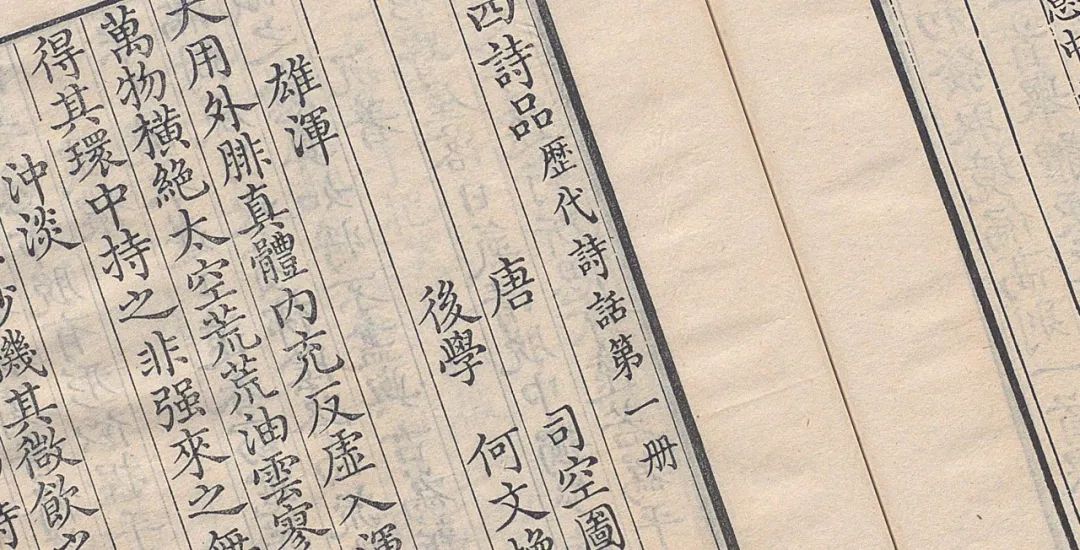 歷代詩話第一冊
四詩品
唐 司空圖
後學 何文煥
雄渾
大用外腓真體內充反虛入渾
萬物橫絕太空荒荒油雲寥
得其環中持之非强來之無
沖淡
妙機其微飲之